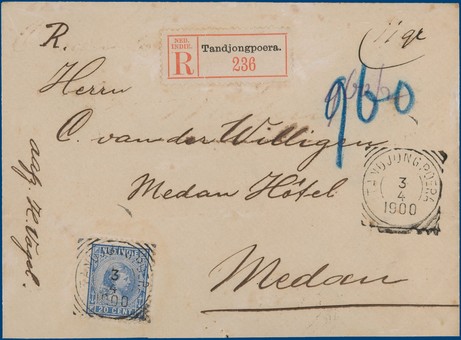 R.
NED.
INDIE.
R
Tandjongpoera.
236
11 gr
960
Herrn
C. van der Willigen
Medan Hôtel
Medan
TANDJONG.POERA
3
4
1900
3
4
1900
20 CENT